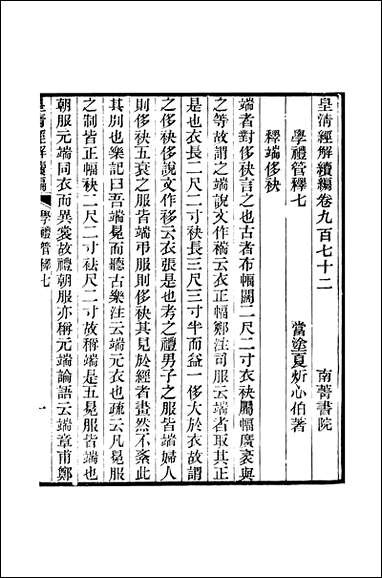 皇淸經解續編卷九百七十二
南菁書院
學禮管釋七
當塗夏炘心伯著
釋端侈袂
端者對侈袂言之也古者布幅闊二尺二寸衣袂屬幅廣袤與
之等故謂之端說文作褍云衣正幅鄭注司服云端者取其正
是也衣長二尺二寸袂長三尺三寸半而益一侈大於衣故謂
之侈袂侈說文作袳云衣張是也考之禮男子之服皆端婦人
則侈袂五衰之服皆端弔服則侈袂其見於經者畫然不紊此
其別也樂記曰吾端冕而聽古樂注云端元衣也疏云凡冕服
之制皆正幅袂二尺二寸袪尺二寸故稱端是五冕服皆端也
朝服元端同衣而異裳故禮朝服亦稱元端論語云端章甫鄭
皇淸經解續編
學禮管釋七
一